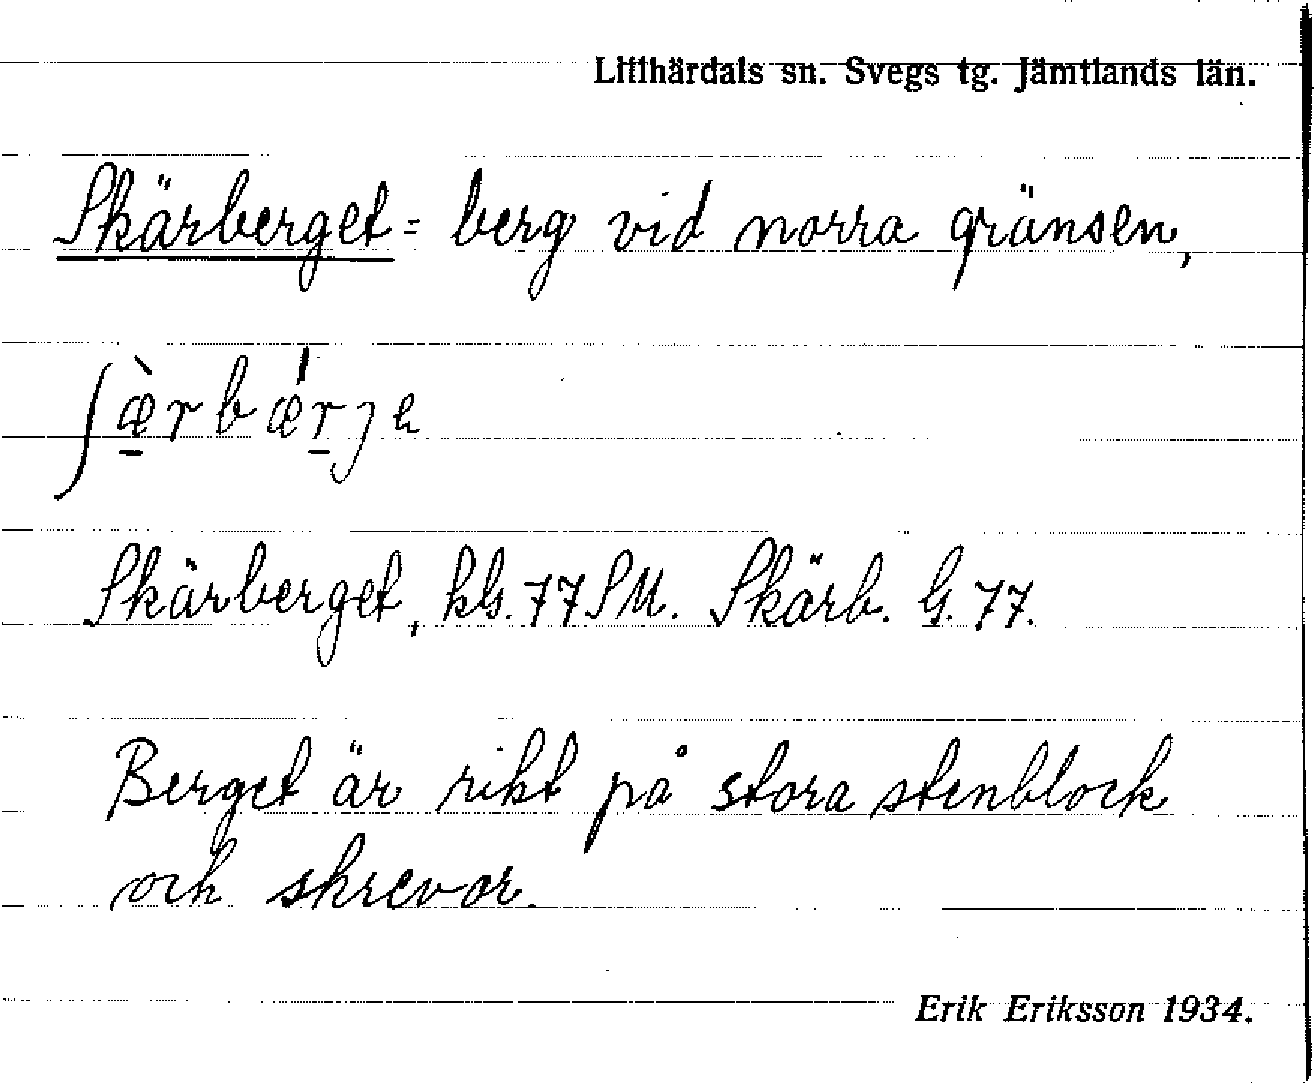 Lillhärdals sn. Svegs tg. Jämtlands län.
Skärberget = berg vid norra gränsen,
ʃæ̱̀rbǽṟje
Skärberget, kb. 77 SM. Skärb. G. 77.
Berget är rikt på stora stenblock
och skrevor.
Erik Eriksson 1934.